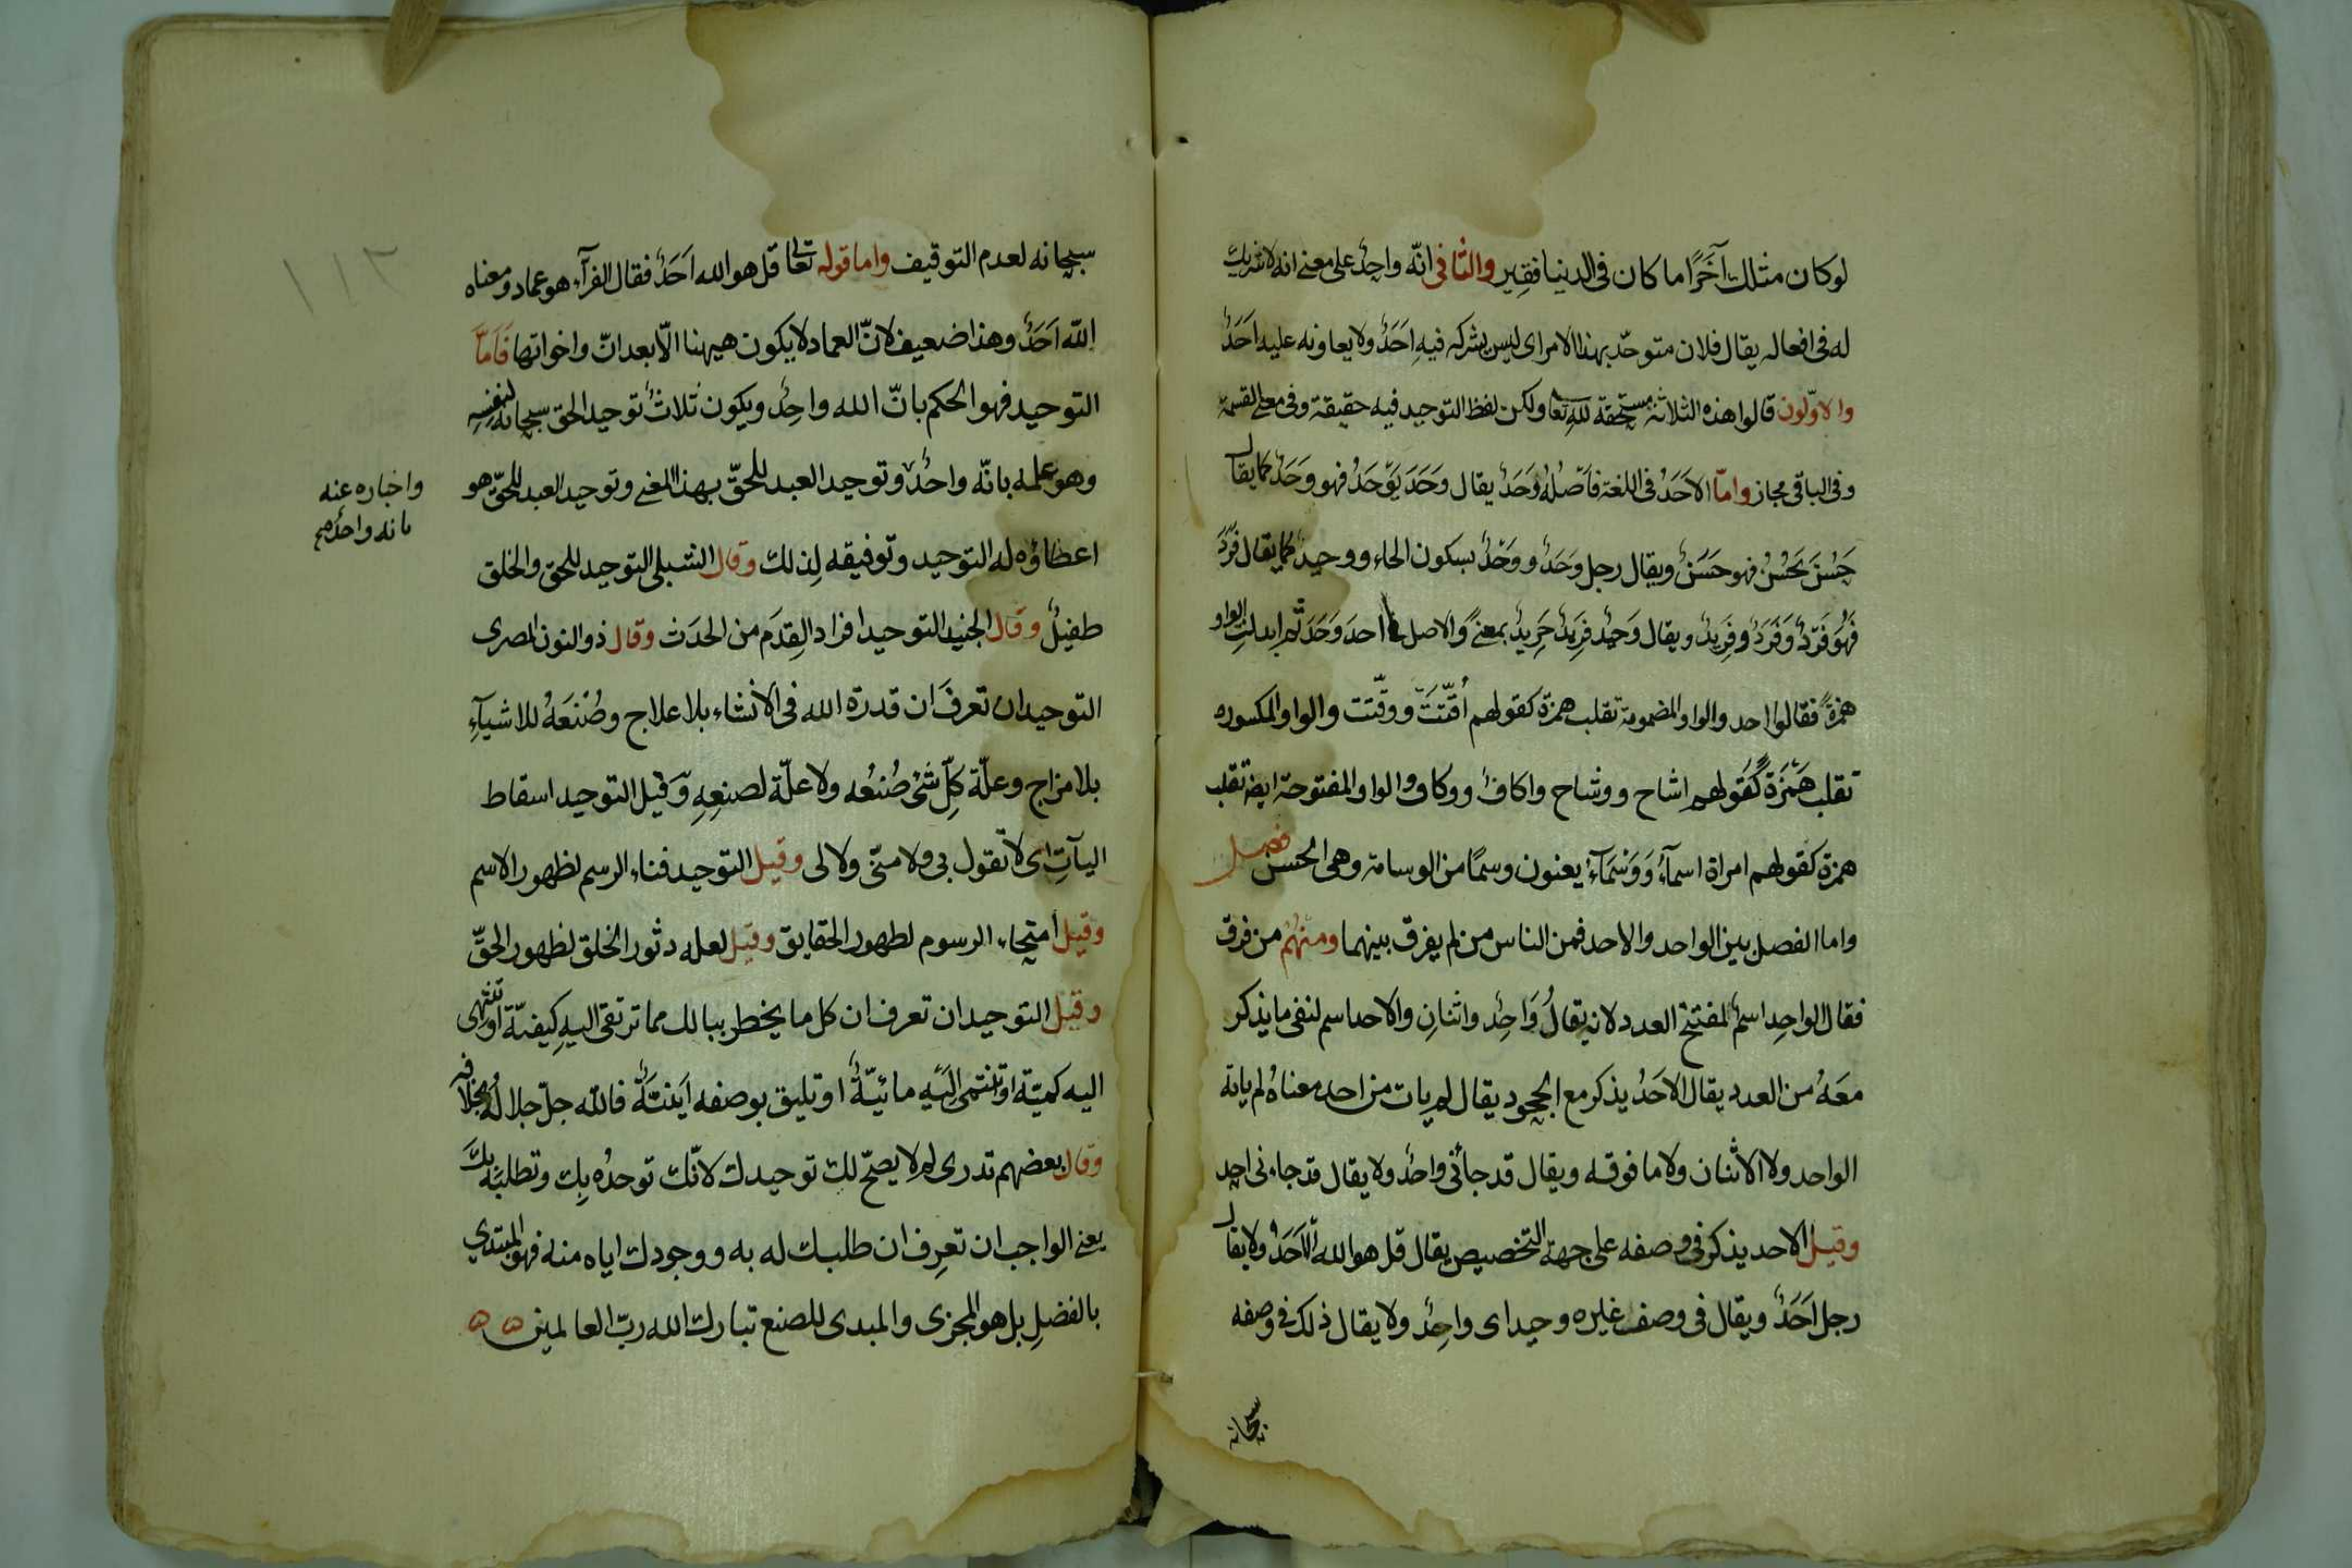 لوكان مثلك آخَرًا ما كان فى الدنيا فقِير والثانى انّه واحِدٌ على معنى انه لا شريك
له فى افعاله يقال فلان متوحّد بهذا الامر اى ليس يشركه فيهِ اَحَدٌ ولا يعاونه عليه اَحَدٌ
والاوّلون قالوا هذه الثلاثة مستحقة للهِ تعا ولكن لفظ التوحيد فيه حقيقة وفى معنى القسمة
وفى الباقى مجاز وامّا الاَحَدُ فى اللغة فاَصْلُهُ وَحَدٌ يقال وَحَدَ يَوْحَدُ فهو وَحَدٌ كما يقال
حَسُنَ يَحْسُنُ فهو حَسَنٌ ويقال رجل وَحَدٌ ووَحْدٌ بسكون الحاء ووحيد كما يقال فَرَدَ
فَهُوَ فَرْدٌ وَفَرَدٌ وفَرِيدٌ ويقال وَحِيْد فَرِيْدٌ حَرِيدٌ بمعنًى والاصل فى احد وَحَد ثم ابدلتِ الواو
همزةً فقالوا احد والواو المضمومة تقلب همزة كقولهم اُقِّتَتْ ووقّتت والواو المكسوره
تقلب هَمْزَةً كَقَولهم اشاح ووشاح واكاف ووكاف والواو المفتوحة ايضه تقلب
همزة كقولهم امراة اسمآءُ وَوَسْمَآءُ يعنون وسمًا من الوسامة وهى الحسن فصل
واما الفصل بين الواحد والاحد فمن الناس من لم يفرق بينهما ومنهُم من فرق
فقال الواحِد اسمٌ لمفتتح العدد لانه يقالُ وَاحِدٌ واثنانِ والاحد اسم لنفى ما يذكر
معَهُ من العدد يقال الاَحَدُ يذكر مع الجحود يقال لم يات من احد معناهُ لم ياته
الواحد ولا الاثنان ولا ما فوقه ويقال قد جائنى واحدٌ ولا يقال قد جاءنى احد
وقيل الاحد يذكر فى وصفه على جهة التخصيص يقال قل هو الله الاَحَدُ ولا يقال
رجل اَحَدٌ ويقال فى وصف غيره وحيد اى واحِدٌ ولا يقال ذلك فى وصفه
سبحانه
سبحانه لعدم التوقيف واما قوله تعا قل هو الله اَحَدٌ فقال الفرآء هو عماد ومعناه
الله اَحَدٌ وهذا ضعيف لانّ العماد لا يكون هيهنا الّا بعد انّ واخواتها فَاَمَّا
التوحيد فهو الحكم بانّ الله واحِدٌ ويكون ثلاثٌ توحيد الحق سبحانه لنفسِهِ
وهو علمه بانّه واحدٌ وتوحيد العبد للحقّ بهذا المعنى وتوحيد العبد للحقّ هو
واخباره عنه
بانه واحدٌ صح
اعطاؤه له التوحيد وتوفيقه لِذلك وقال الشبلى التوحيد للحق والخلق
طفيلٌ وقال الجنيد التوحيد افراد القِدَم من الحدَث وقال ذوالنون المصرى
التوحيد ان تعرفَ ان قدرة الله فى الانشاء بلا علاج وصُنْعَهُ للاشيآءِ
بلا مزاج وعلّة كلّ شئ صُنْعُه ولا علّة لصنعِهِ وقيل التوحيد اسقاط
اليآتِ اى لا تقول بى ولا منّى ولا لى وقيل التوحيد فناء الرسم لظهور الاسم
وقيل امتحاء الرسوم لظهور الحقايق وقيل لعله دثور الخلق لظهور الحقّ
وقيل التوحيد ان تعرف ان كل ما يخطر ببالك مما ترتقى اليهِ كيفيّة او تنتهى
اليه كميّة او تنتمى اليَهِ مائيّةٌ او تليق بوصفه اَيْنيّةٌ فالله جلّ جلاله بخلافه
وقال بعضهم تدرى لم لا يصحّ لك توحيدك لانّك توحدُه بِك وتطلبَه بِكَ
يعنى الواجب ان تعرِف ان طلبك له به ووجودك اياه منه فهو المبتدي
بالفضلِ بل هو المجزى والمبدى للصنع تبارك الله ربّ العالمين ه ه
١١٢